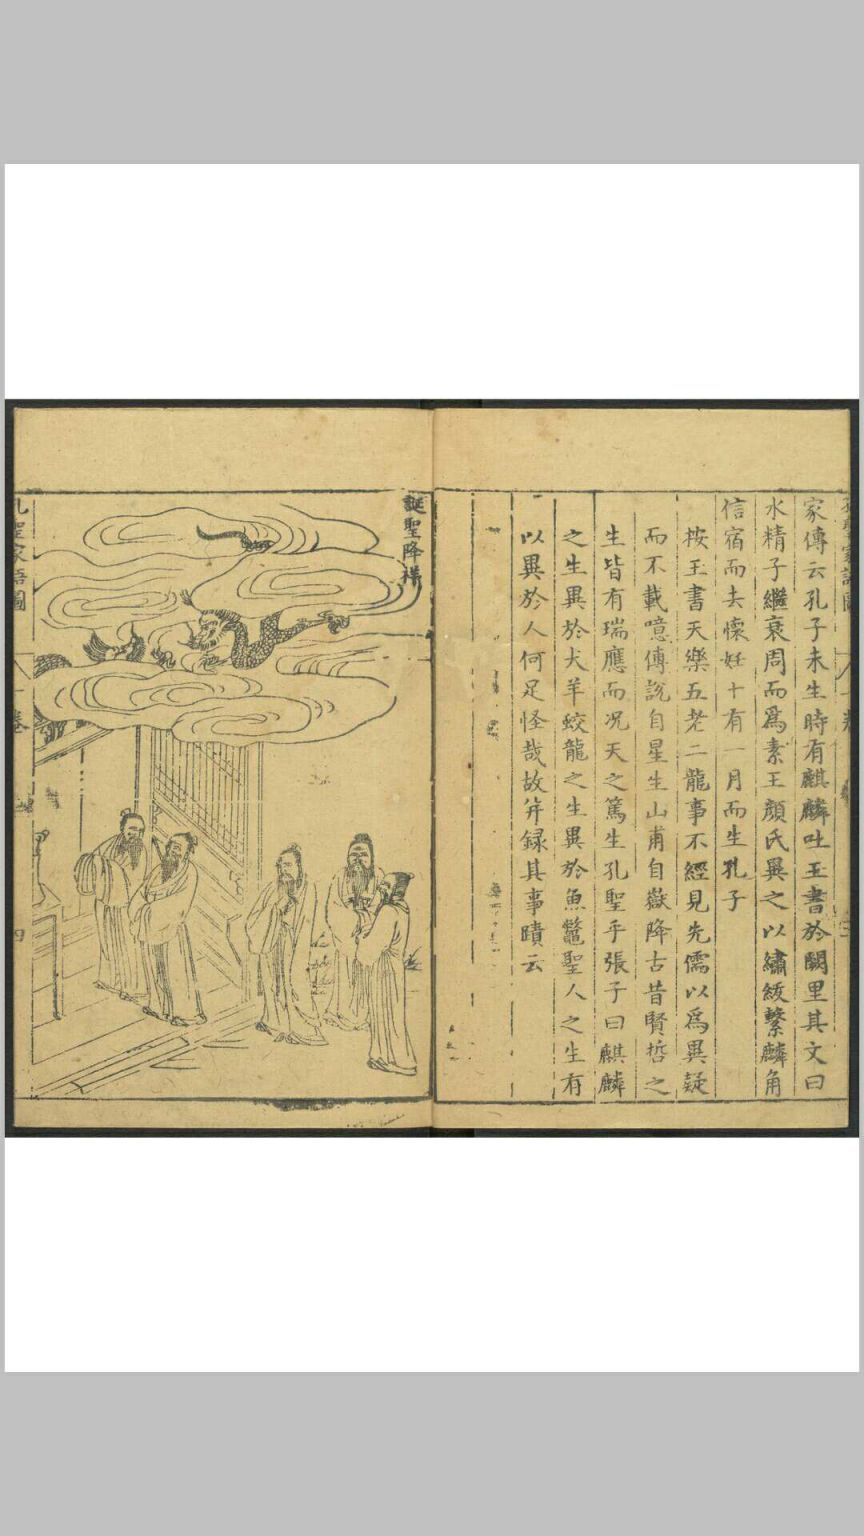 家傳云孔子未生時有麒麟吐玉書於闕里其文曰
水精子繼衰周而爲素王顏氏異之以繡紱繫麟角
信宿而去懷妊十有一月而生孔子
按玉書天樂五老二龍事不經見先儒以爲異疑
而不載噫傅說自星生山甫自嶽降古昔賢哲之
生皆有瑞應而况天之篤生孔聖乎張子曰麒麟
之生異於犬羊蛟龍之生異於魚鼈聖人之生有
以異於人何足怪哉故并録其事蹟云
誕聖降祥
孔聖家語圖
一卷
四